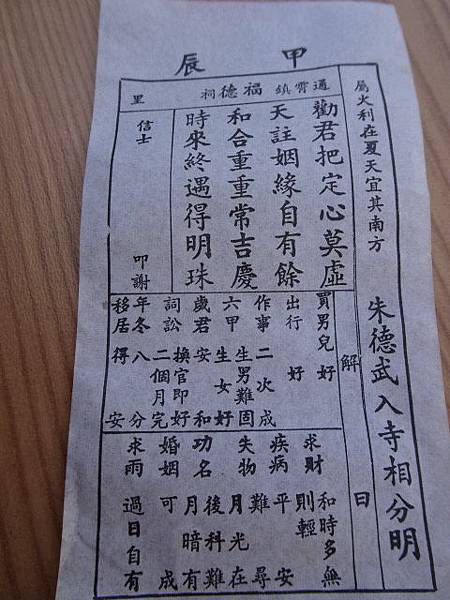 甲辰
屬火利在夏天宜其南方 朱德武入寺相分明
通霄鎮 福德祠 里
勸君把定心莫虛
天註姻緣自有餘
和合重重常吉慶
時來終遇得明珠
信士 叩謝
解曰
賈男兒 好
出行 好
作事 二次成
六甲 生男難固 生女好
歲君 安和
詞訟 換官即好 二個月完
年冬 八分
移居 得安
求財 和時多無 則輕
疾病 平安
失物 難尋 月光在
功名 後科難 月暗有
婚姻 可成
求雨 過日自有